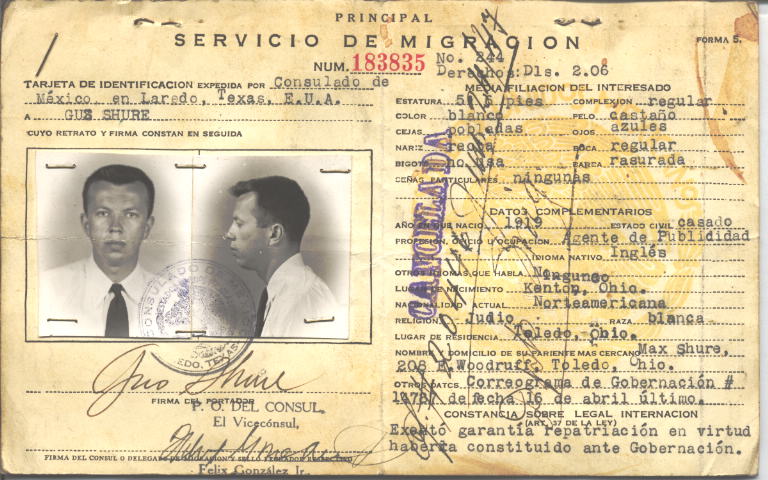 PRINCIPAL
SERVICIO DE MIGRACION
FORMA 5.
NUM. 183835
No. 244
Derechos: Dls. 2.06
TARJETA DE IDENTIFICACION EXPEDIDA POR Consulado de
México en Laredo, Texas, E.U.A.
A GUS SHURE
CUYO RETRATO Y FIRMA CONSTAN EN SEGUIDA
CONSULADO DE
EDO, TEXAS
Gus Shure
FIRMA DEL PORTADOR
P. O. DEL CONSUL.
El Vicecónsul,
FIRMA DEL CONSUL O DELEGADO DE MIGRACION Y SELLO
Felix González Jr.
MEDIA FILIACION DEL INTERESADO
ESTATURA pies COMPLEXION regular
COLOR blanco PELO castaño
CEJAS pobladas OJOS azules
NARIZ BOCA regular
BIGOTE no usa BARBA rasurada
SEÑAS PARTICULARES ningunas
CANCELADA
DATOS COMPLEMENTARIOS
AÑO EN QUE NACIO 1919 ESTADO CIVIL casado
PROFESION, OFICIO U OCUPACION Agente de Publicidad
IDIOMA NATIVO Inglés
OTROS IDIOMAS QUE HABLA Ninguno
LUGAR DE NACIMIENTO Kenton, Ohio.
NACIONALIDAD ACTUAL Norteamericana
RELIGION Judio RAZA blanca
LUGAR DE RESIDENCIA Toledo, Ohio.
NOMBRE Y DOMICILIO DE SU PARIENTE MAS CERCANO Max Shure,
208 E. Woodruff, Toledo, Ohio.
OTROS DATOS Correograma de Gobernación #
de fecha 16 de abril último.
CONSTANCIA SOBRE LEGAL INTERNACION
(ART. 37 DE LA LEY)
garantía repatriación en virtud
haberla constituido ante Gobernación.